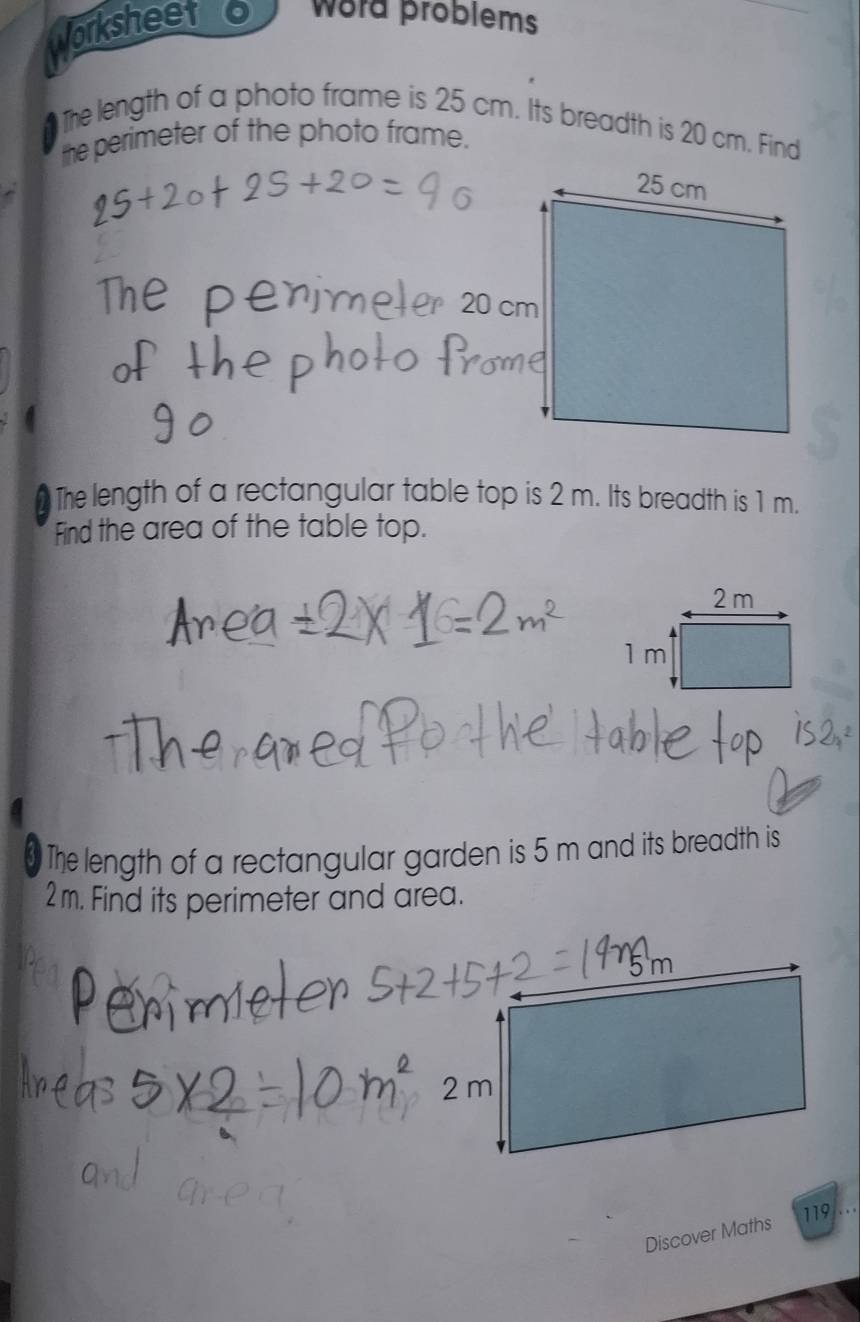 Worksheet 6 Word problems
1 The length of a photo frame is 25 cm. Its breadth is 20 cm. Find
the perimeter of the photo frame.
25+20+25+20=90
25 cm
The perimeter
20 cm
of the photo frome
90
2 The length of a rectangular table top is 2 m. Its breadth is 1 m.
Find the area of the table top.
2 m
Area =2×1=2m²
1 m
The area fo the table top is 2m²
3 The length of a rectangular garden is 5 m and its breadth is
2 m. Find its perimeter and area.
Perimeter 5+2+5+2=14m
5 m
Area= 5×2=10m²
2 m
and area
Discover Maths 119